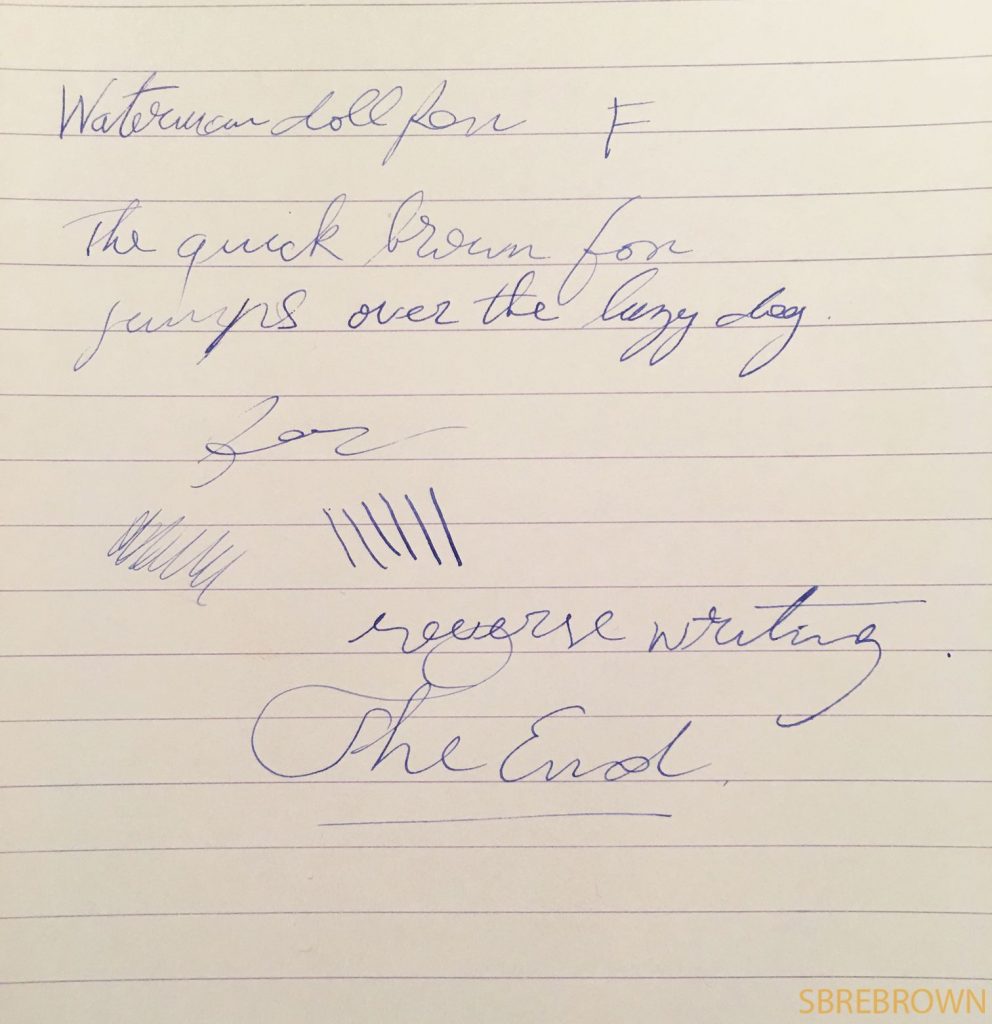 Waterman doll fox F
The quick brown fox
jumps over the lazy dog.
fox
reverse writing.
The End.
SBREBROWN